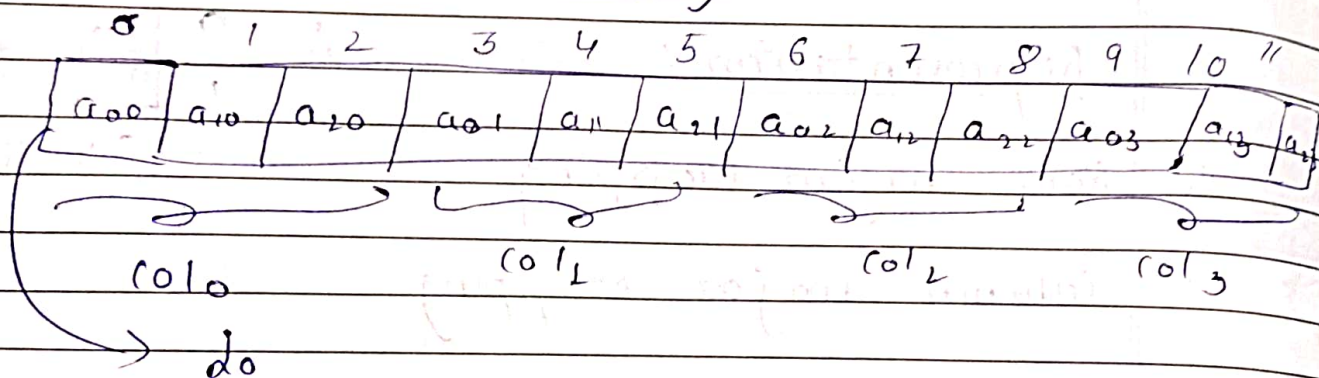 0 1 2 3 4 5 6 7 8 9 10 11
a00 a10 a20 a01 a11 a21 a02 a12 a22 a03 a13
col0 col1 col2 col3
do